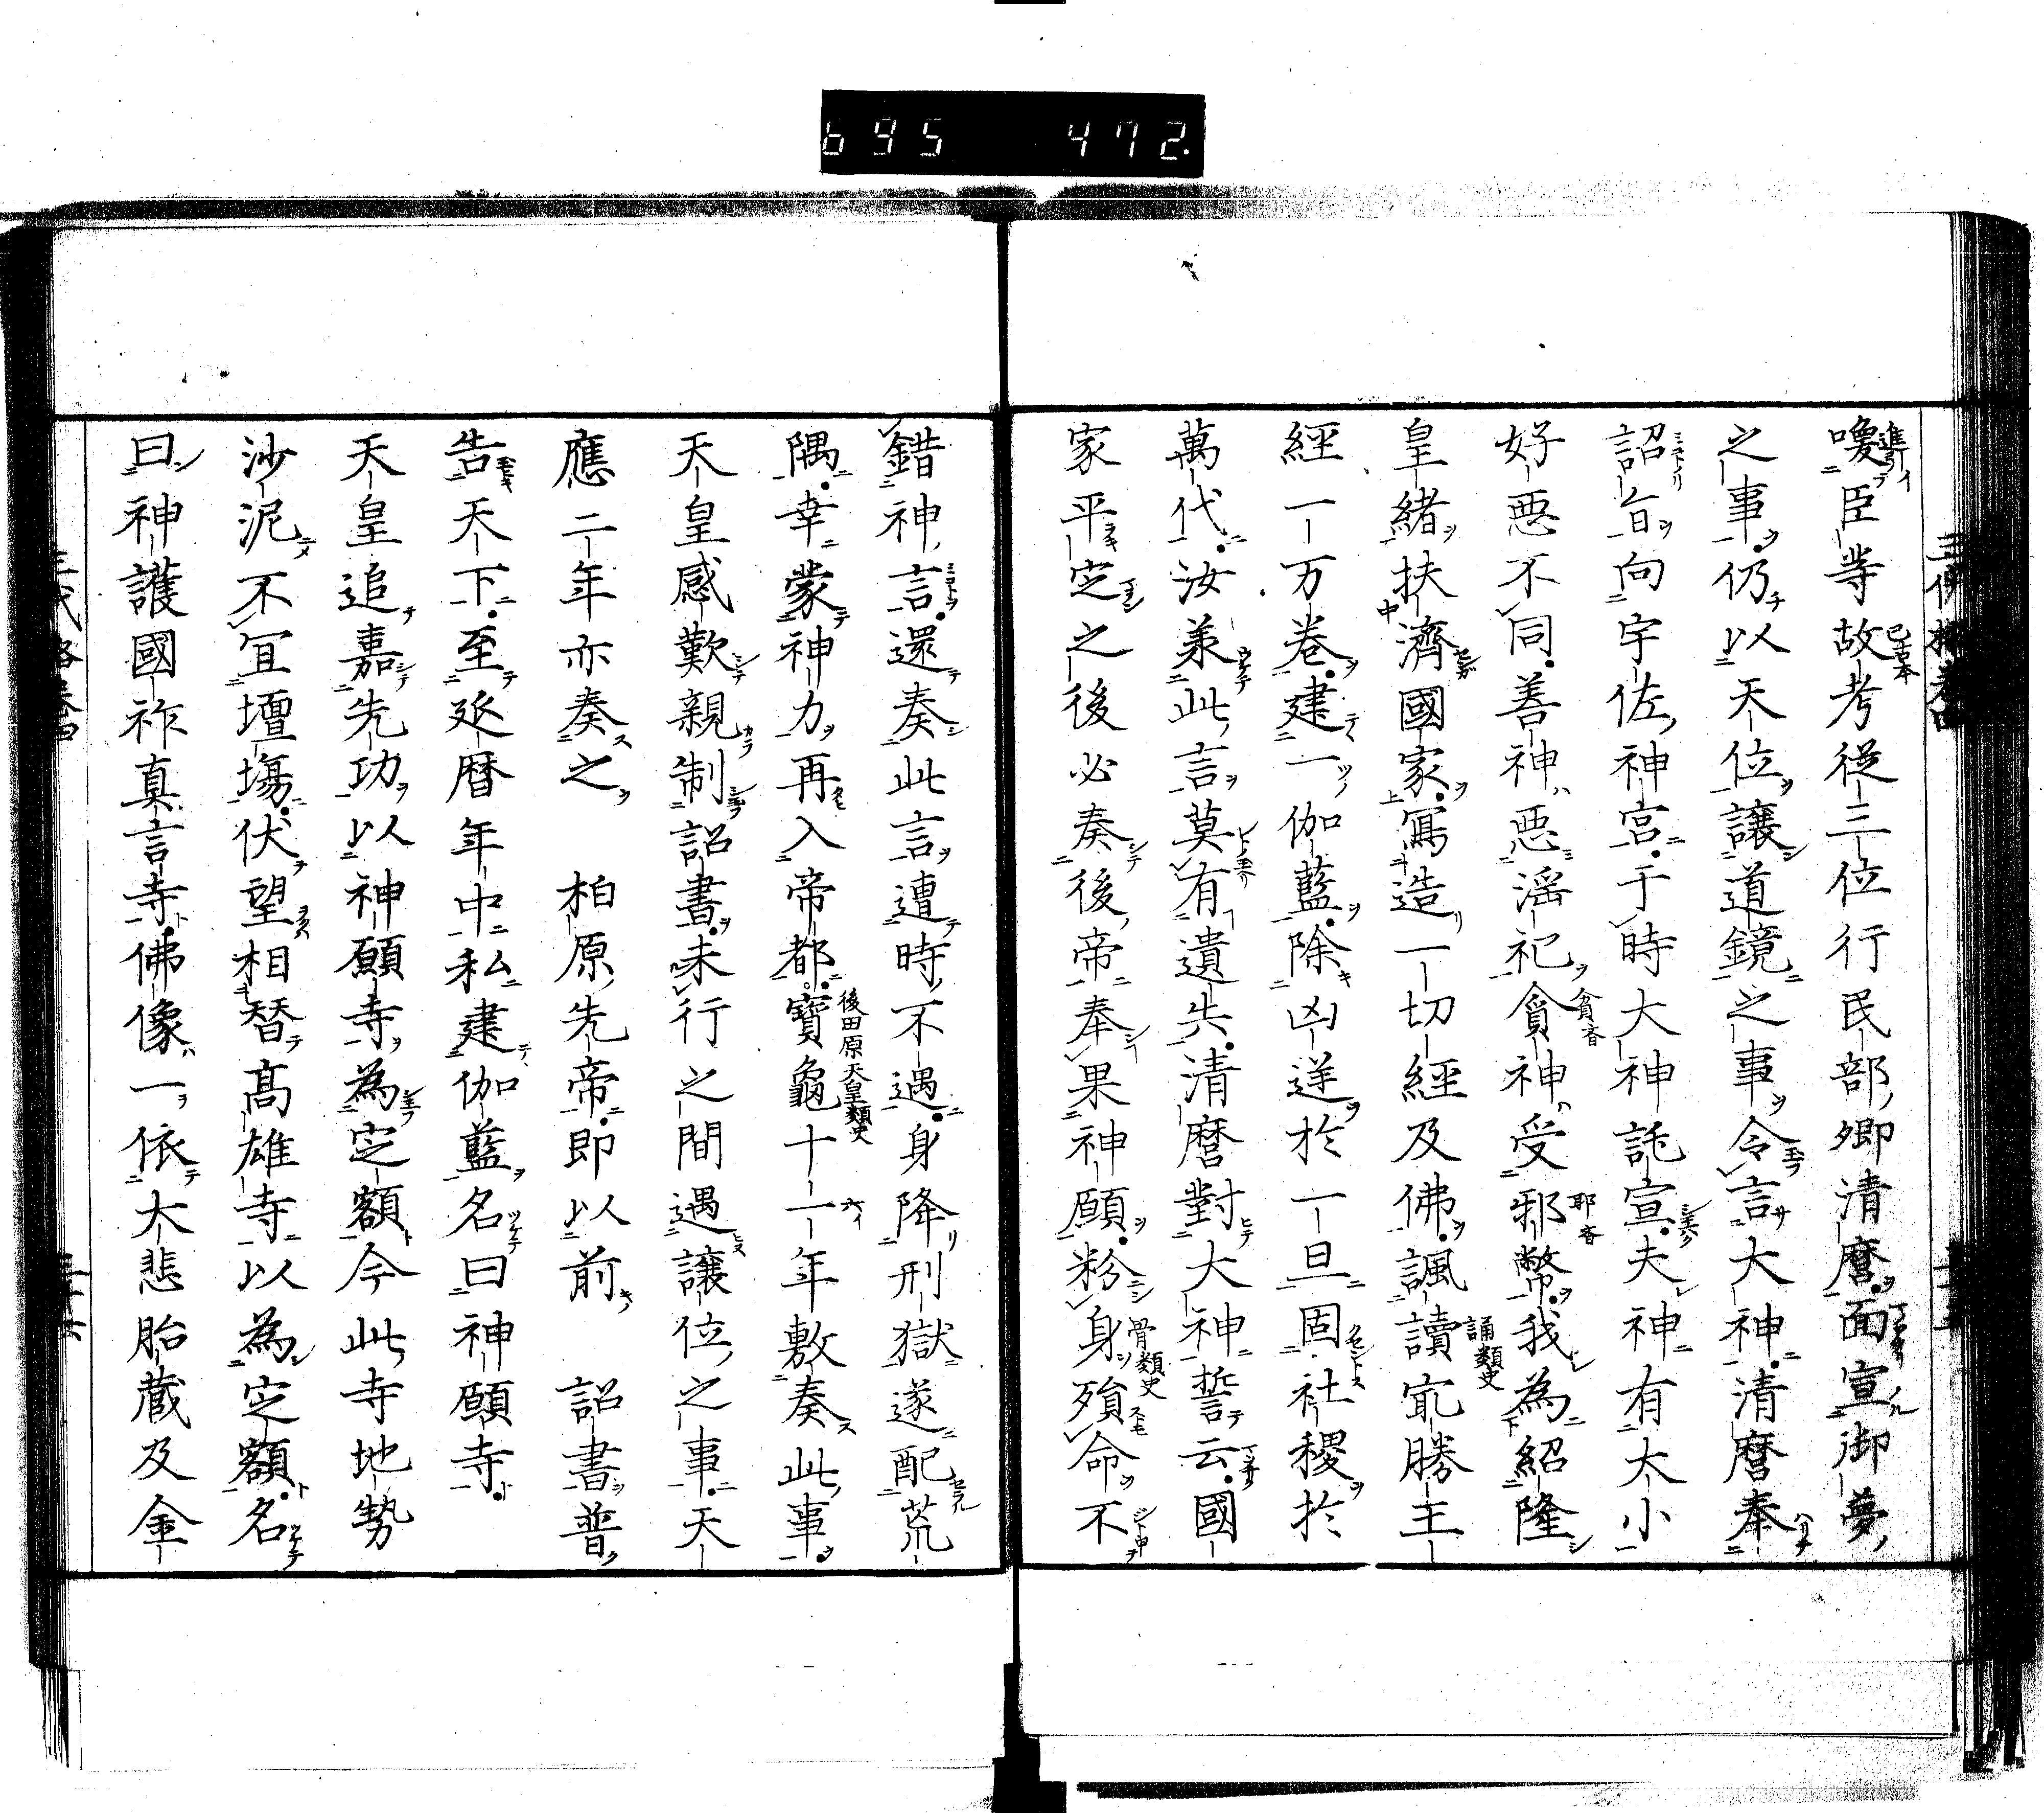 695 472
喚臣等故考從三位行民部卿清麿面宣御夢
之事仍以天位讓道鏡之事令言大神清麿奉
詔旨向宇佐神宮于時大神託宣夫神有大小
好惡不同善神惡淫祀貪神受邪幣我為紹隆
皇緒扶濟國家寫造一切經及佛諷讀最勝王
經一万卷建一伽藍除凶逆於一旦固社稷於
萬代汝兼此言莫有遺失清麿對大神誓云國
家平定之後必奏後帝奉果神願粉身殞命不
錯神言還奏此言遭時不遇身降刑獄遂配荒
隅幸蒙神力再入帝都寶龜十一年敷奏此事
天皇感歎親制詔書未行之間遇讓位之事天
應二年亦奏之 柏原先帝即以前 詔書普
告天下至延曆年中私建伽藍名曰神願寺
天皇追嘉先功以神願寺為定額今此寺地勢
沙泥不宜壇場伏望相替高雄寺以為定額名
曰神護國祚真言寺佛像一依大悲胎藏及金